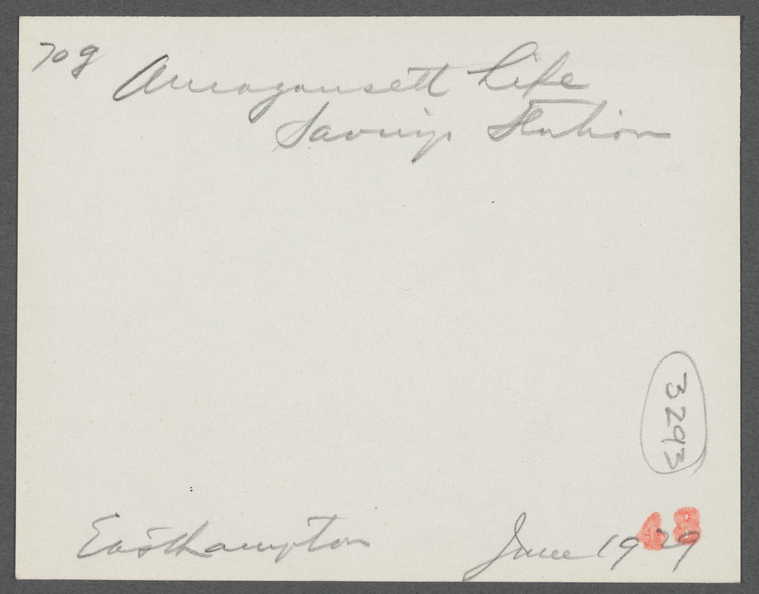 70g
Amagansett Life
Savings Station
3293
Easthampton
June 1929
48